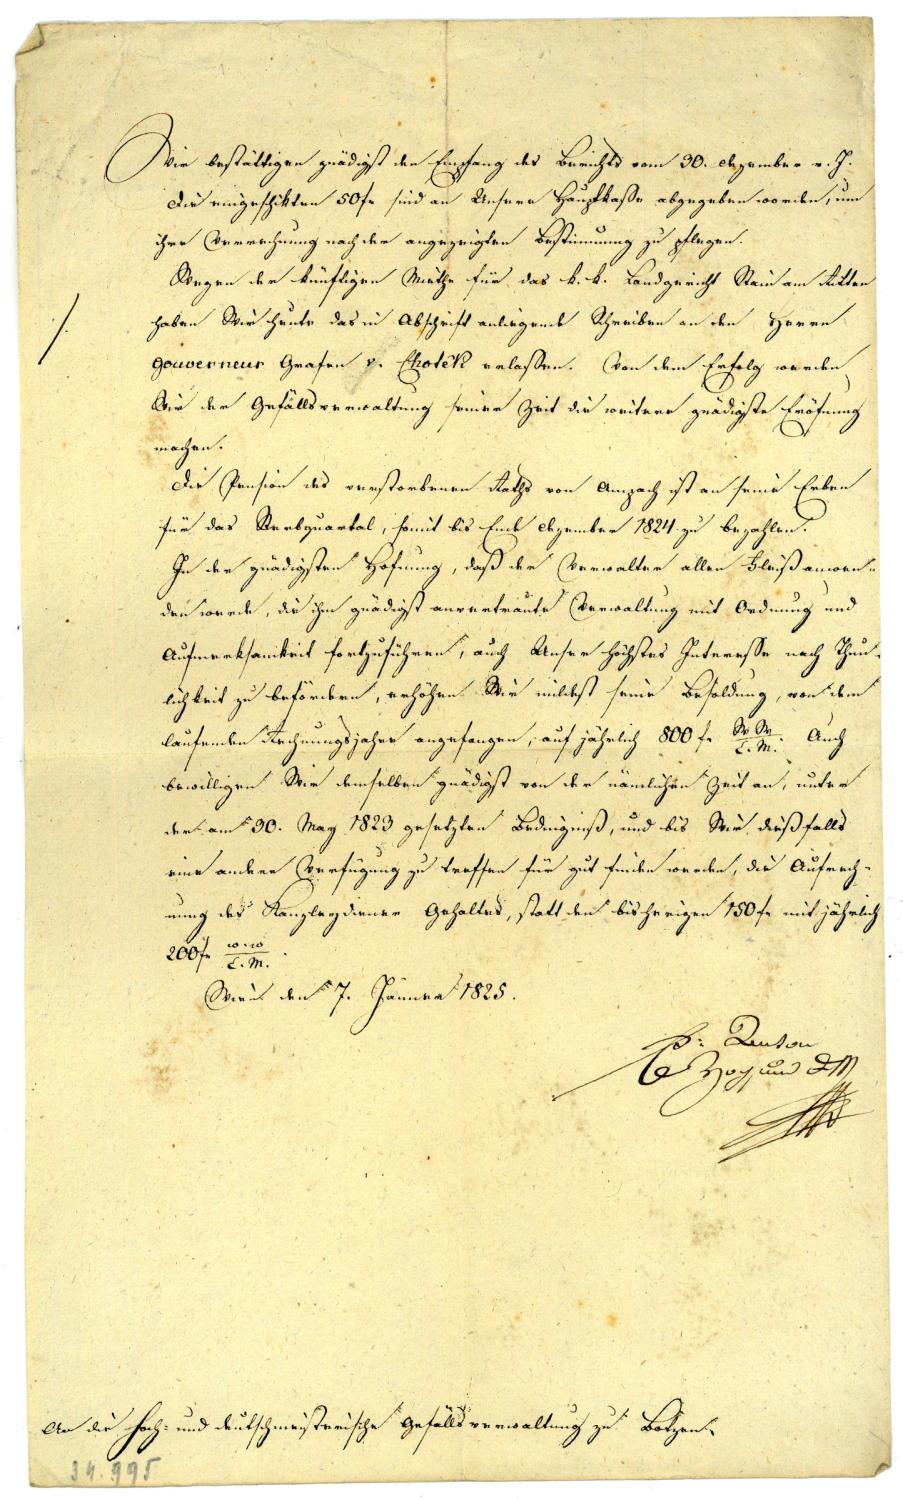 Wir bestättigen gnädigst den Empfang des Berichts vom 30. Dezember v. J.
Die eingeschikten 50 f. sind an Unsere Hauptkasse abgegeben worden, um
ihre Verrechnung nach der angezeigten Bestimmung zu pflegen.
Wegen der künftigen Miethe für das k. k. Landgericht Stein am Ritten
haben Wir heute das in Abschrift anliegende Schreiben an den Herrn
Gouverneur Grafen v. Chotek erlassen. Von dem Erfolg werden
Wir der Gefällsverwaltung seiner Zeit die weitere gnädigste Eröfnung
machen.
Die Pension des verstorbenen Raths von Anzach ist an seine Erben
für das Sterbquartal, somit bis Ende Dezember 1824 zu bezahlen.
In der gnädigsten Hofnung, daß der Verwalter allen Fleiß anwen-
den werde, die ihm gnädigst anvertraute Verwaltung mit Ordnung und
Aufmerksamkeit fortzuführen, auch Unser höchstes Interesse nach Thun-
lichkeit zu befördern, erhöhen Wir mildest seine Besoldung, von dem
laufenden Rechnungsjahre angefangen, auf jährlich 800 f. W W / C. M. Auch
bewilligen Wir demselben gnädigst von der nämlichen Zeit an, unter
der am 30. May 1823 gesetzten Bedingniß, und bis Wir dießfalls
eine andere Verfügung zu treffen für gut finden werden, die Aufrech-
nung des Kanzleydiener Gehaltes, statt den bisherigen 150 f. mit jährlich
200 f. W. W / C. M.
Wien den 7. Jänner 1825.
Anton
Hoch und DM
An die Hoch- und deutschmeisterische Gefällsverwaltung zu Botzen.
34.995